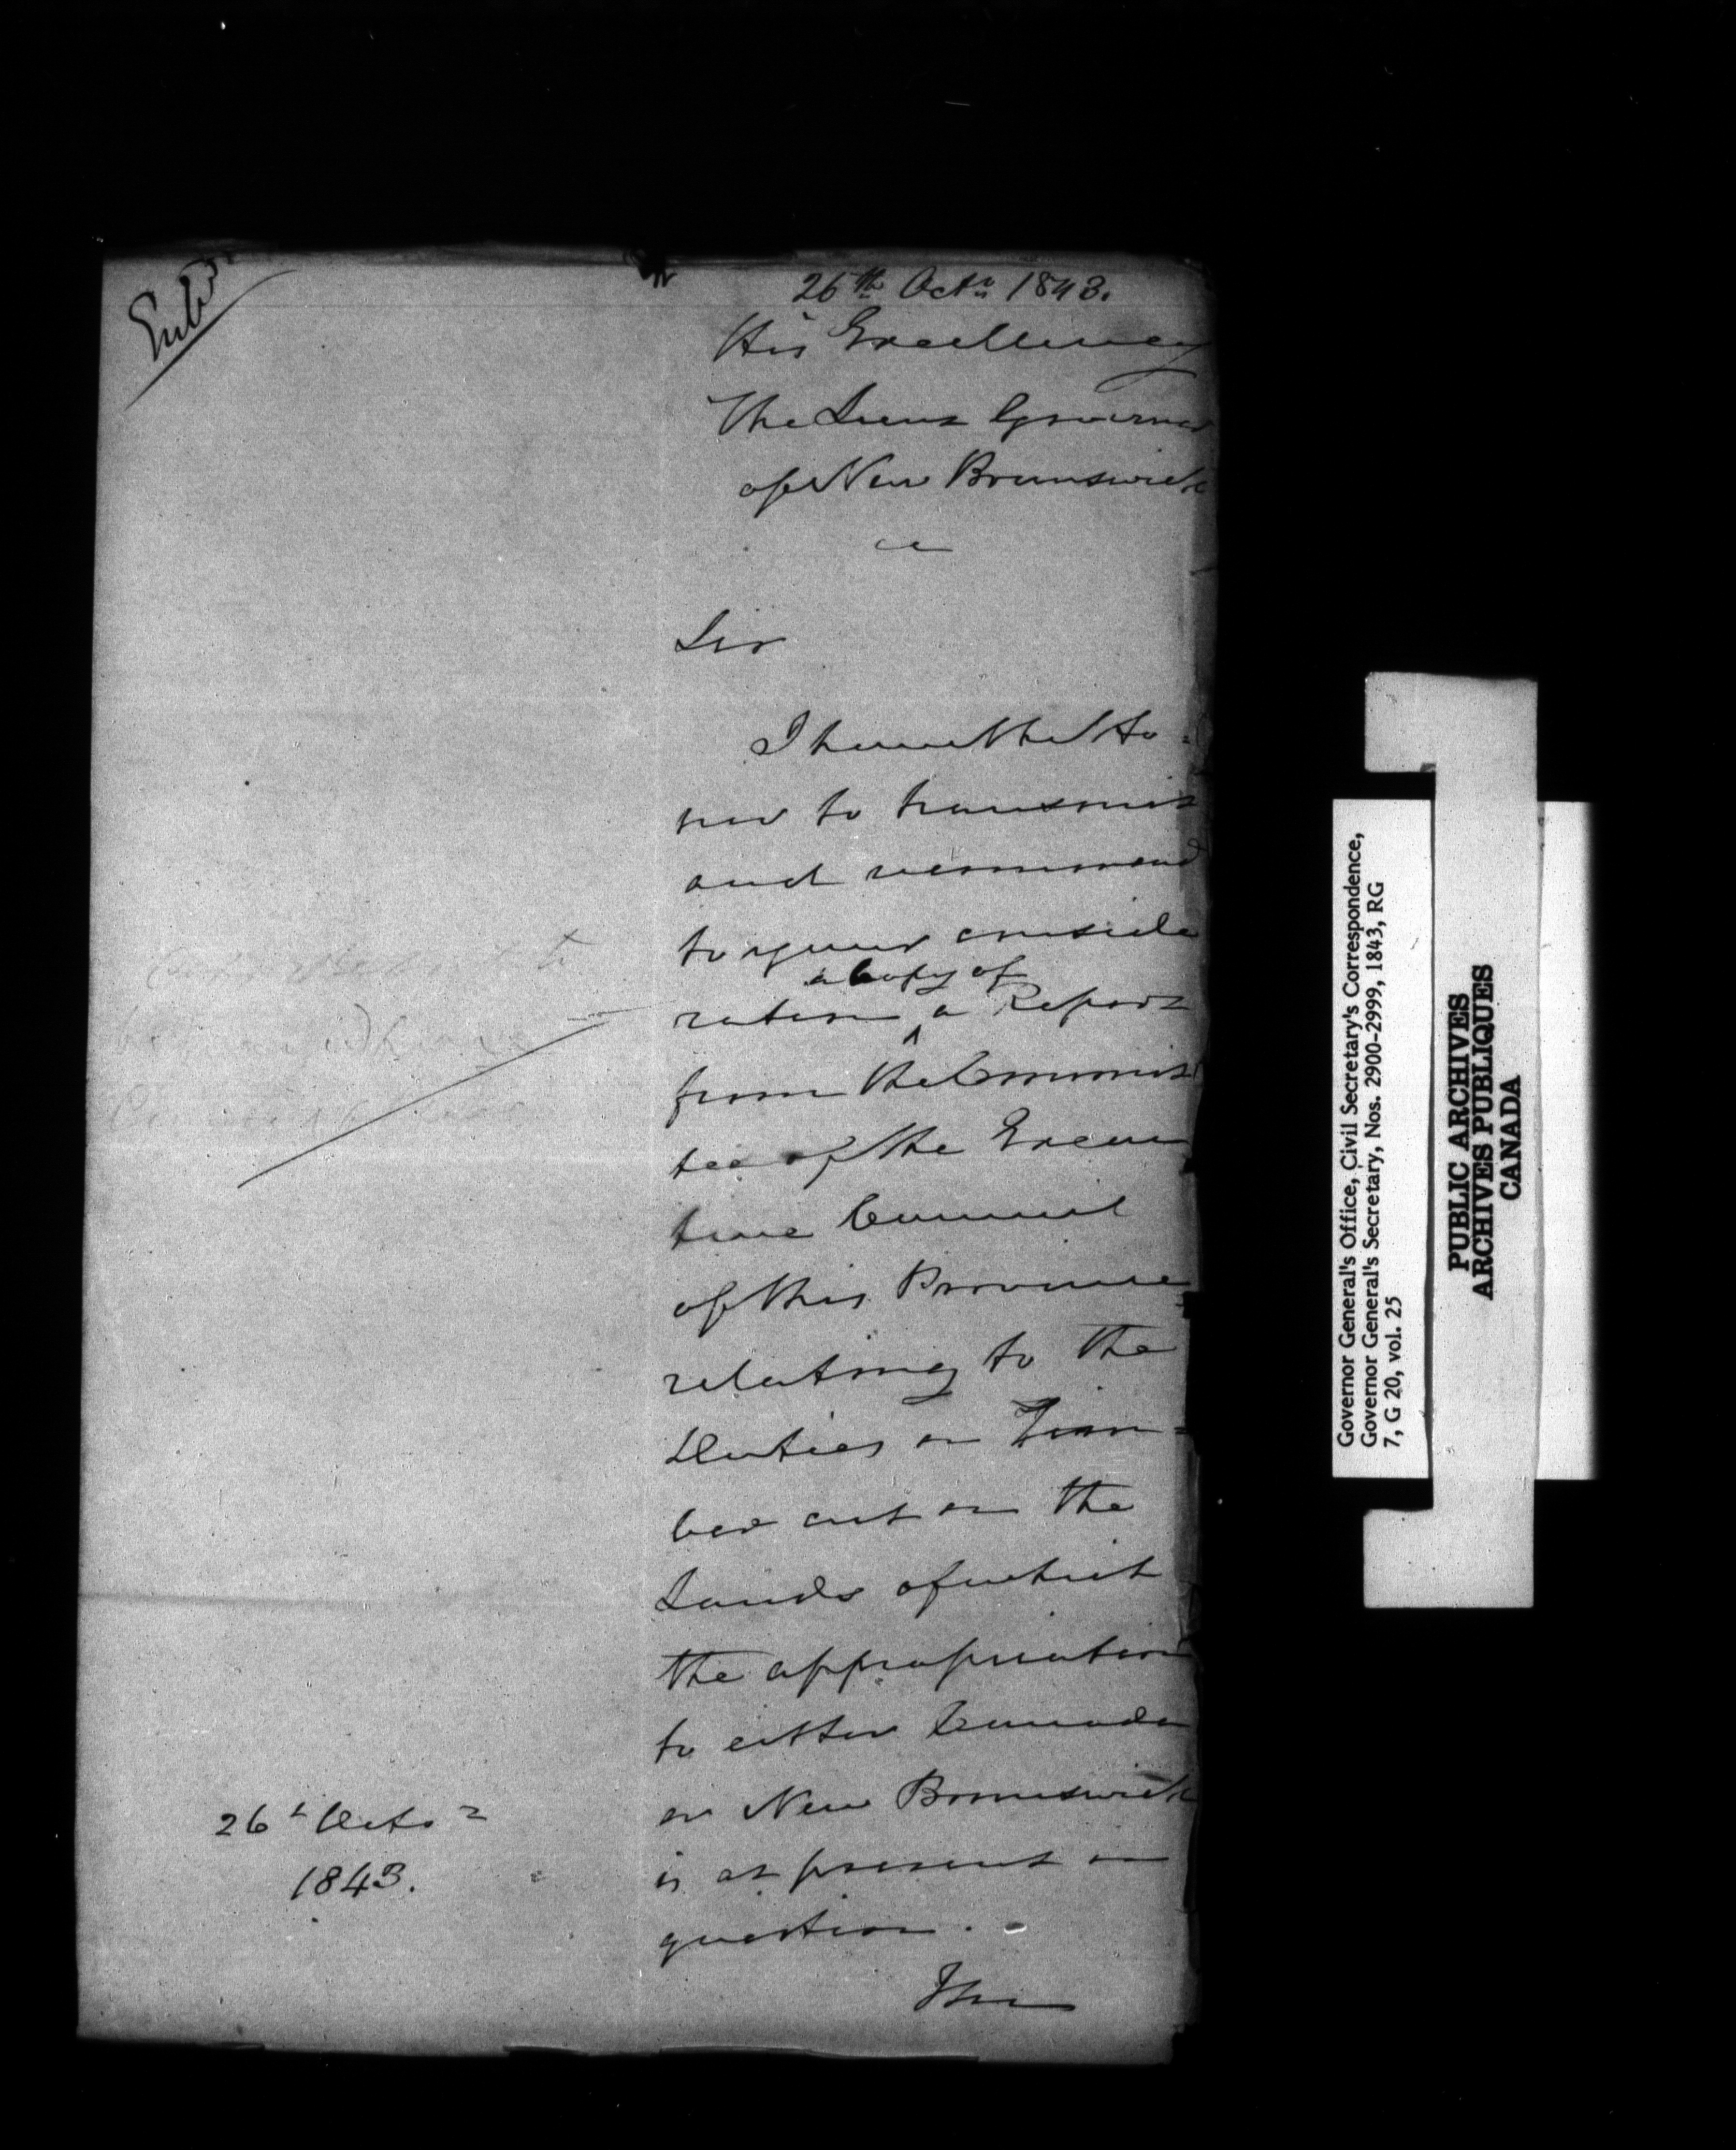 Entd
26th Octr 1843.
His Excellency
The Lieut Governor
of New Brunswick
Sir
I have the Ho-
nor to transmit
and recommend
to your conside
a Copy of
ration a Report
from the Commit
tee of the Execu
tive Council
of this Province
relating to the
Duties on Tim-
ber cut on the
Lands of which
the appropriation
to either Canada
or New Brunswick
is at present in
question.
I have
26th Octor
1843.
Governor General's Office, Civil Secretary's Correspondence,
Governor General's Secretary, Nos. 2900-2999, 1843, RG
7, G 20, vol. 25
PUBLIC ARCHIVES
ARCHIVES PUBLIQUES
CANADA